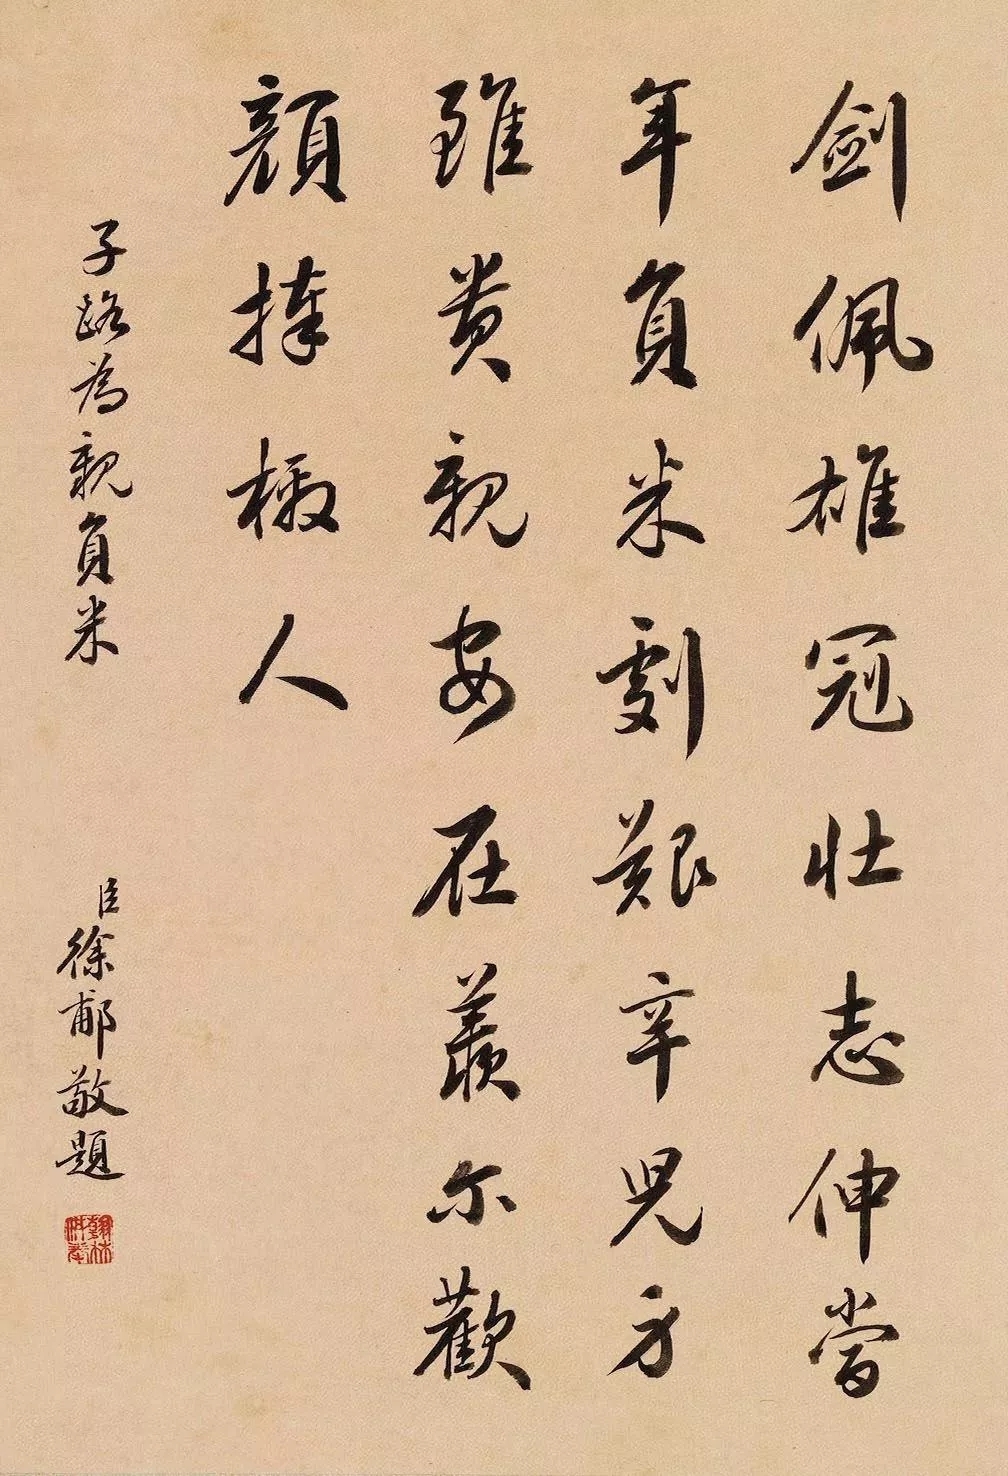 劍佩雄冠壯志伸當
年負米劇艱辛兒身
雖貴親安在羨尔歡
顔捧檄人
子路為親負米
臣徐郙敬題
翰林供奉